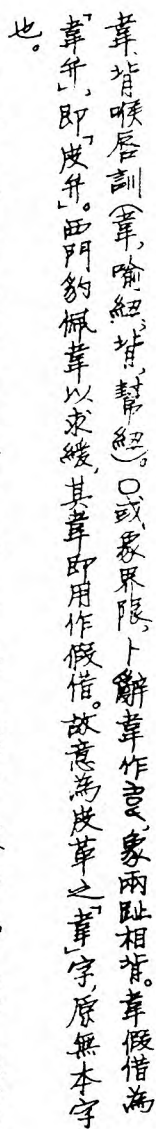 韋、背喉唇訓（韋，喻紐；背，幫紐）。口或象界限，卜辭韋作，象兩趾相背。韋假借為
「韋弁」，即「皮弁」。西門豹佩韋以求緩，其韋即用作假借。故意為皮革之「韋」字，原無本字
也。